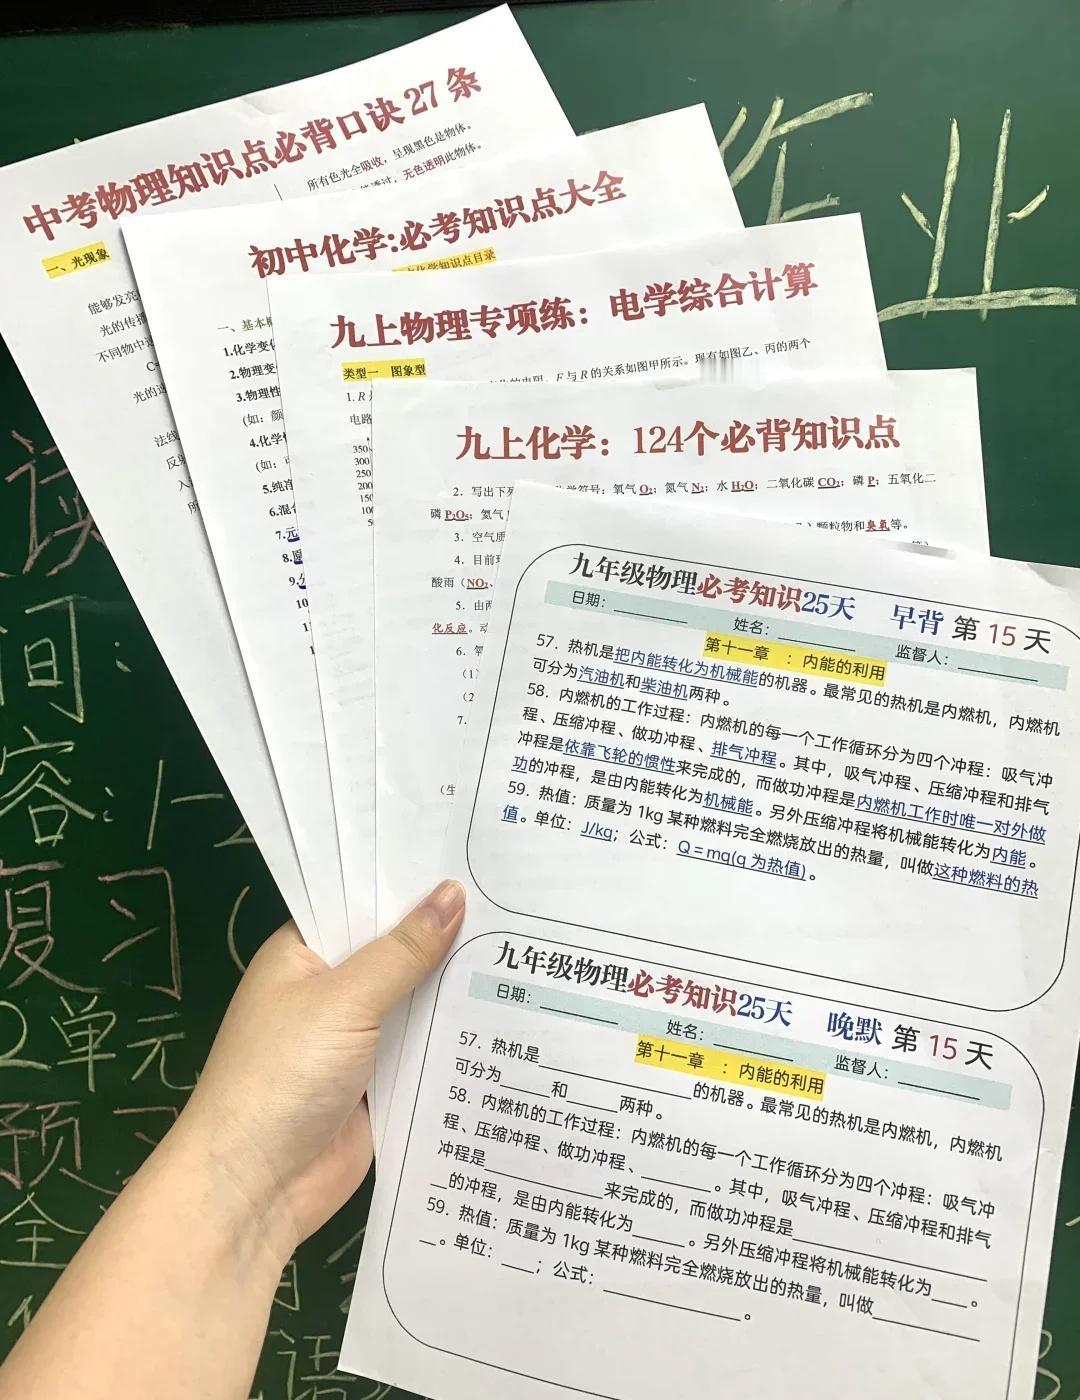 中考物理知识点必背口诀27条
所有色光全吸收，呈现黑色是物体。
透过，无色透明此物体。
一、光现象
能够发亮
光的传播
不同物中
光的速
法线
反射
初中化学:必考知识点大全
化学知识点目录
一、基本概
1.化学变化
2.物理变
3.物理性
(如：颜
4.化学性
(如：可
5.纯净
6.混合
7.元
8.原
9.分
10
九上物理专项练：电学综合计算
类型一 图象型
1. R
的电阻，F与R的关系如图甲所示。现有如图乙、丙的两个
电路
350
300
250
200
150
100
九上化学：124个必背知识点
2. 写出下列 化学符号；氧气O₂；氮气N₂；水H₂O；二氧化碳CO₂；磷P；五氧化二
磷P₂O₅；氦气
颗粒物和臭氧等。
3. 空气质
4. 目前环
酸雨（NO₂、
5. 由两
化反应。动
6. 氧
(1)
(2
7.
（生
九年级物理必考知识25天 早背 第 15 天
日期： 姓名： 监督人：
第十一章 ：内能的利用
57. 热机是把内能转化为机械能的机器。最常见的热机是内燃机，内燃机
可分为汽油机和柴油机两种。
58. 内燃机的工作过程：内燃机的每一个工作循环分为四个冲程：吸气冲
程、压缩冲程、做功冲程、排气冲程。其中，吸气冲程、压缩冲程和排气
冲程是依靠飞轮的惯性来完成的，而做功冲程是内燃机工作时唯一对外做
功的冲程，是由内能转化为机械能。另外压缩冲程将机械能转化为内能。
59. 热值：质量为 1kg 某种燃料完全燃烧放出的热量，叫做这种燃料的热
值。单位：J/kg；公式：Q=mq(q 为热值)。
九年级物理必考知识25天 晚默 第 15 天
日期： 姓名： 监督人：
第十一章 ：内能的利用
57. 热机是______的机器。最常见的热机是内燃机，内燃机
可分为____和____两种。
58. 内燃机的工作过程：内燃机的每一个工作循环分为四个冲程：吸气冲
程、压缩冲程、做功冲程、______。其中，吸气冲程、压缩冲程和排气
冲程是________来完成的，而做功冲程是________
_的冲程，是由内能转化为____。另外压缩冲程将机械能转化为___。
59. 热值：质量为 1kg 某种燃料完全燃烧放出的热量，叫做________
_。单位：___；公式：________。
作业
读
间：
容：1-2
复习(
2单元
预习
全
语